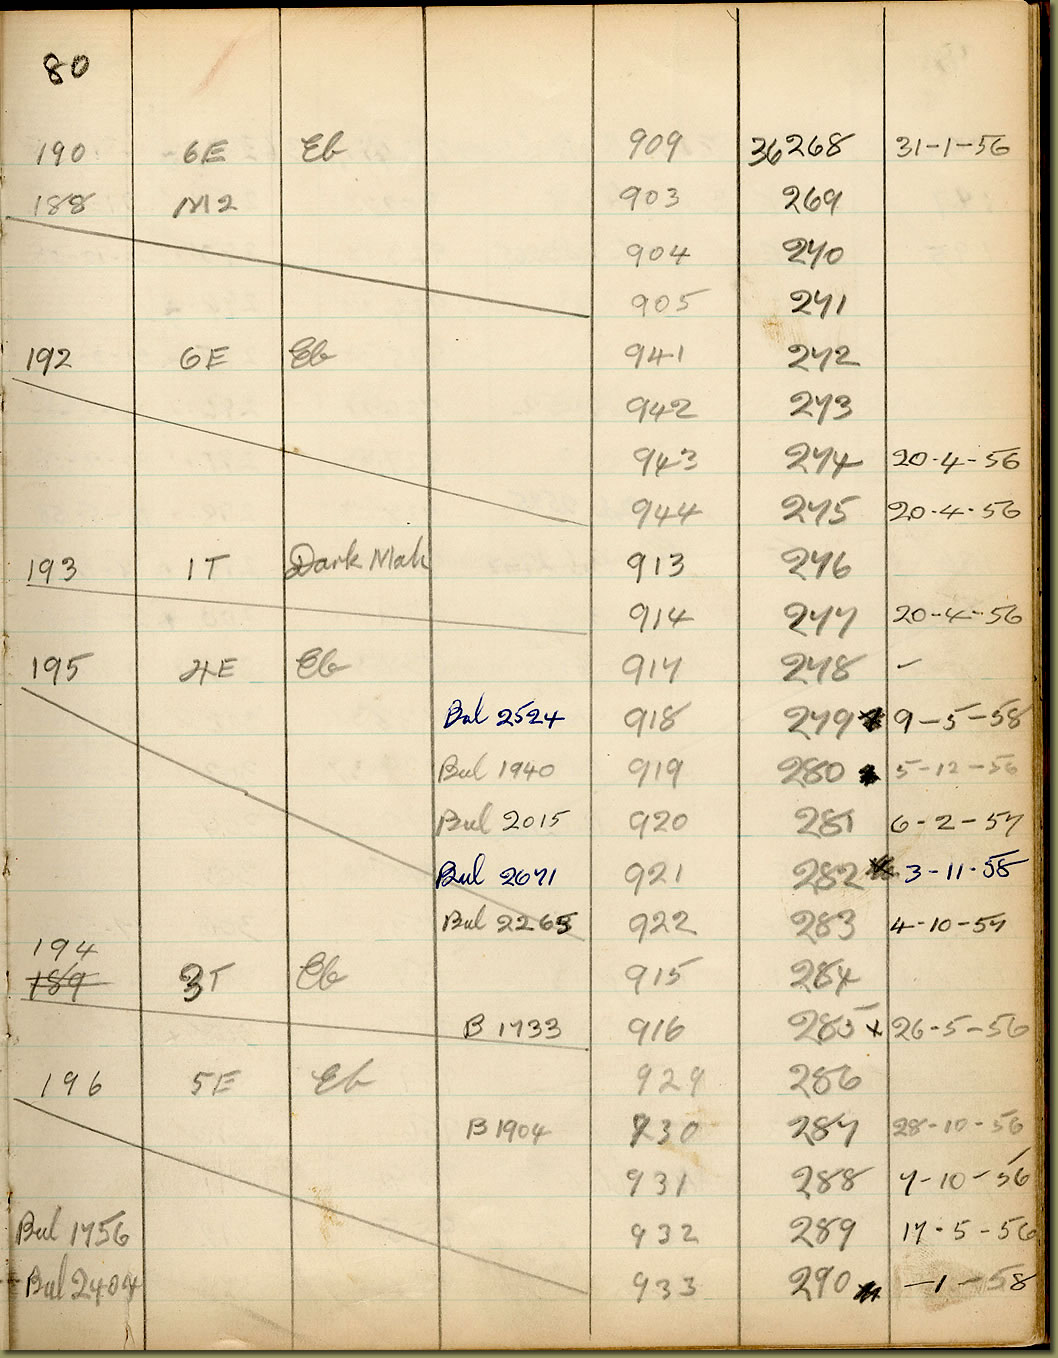 80
190 6E Eb 909 36268 31-1-56
188 M2 903 269
904 270
905 271
192 6E Eb 941 272
942 273
943 274 20-4-56
944 275 20-4-56
193 1T Dark Mah 913 276
914 277 20-4-56
195 4E Eb 917 278 -
Bul 2524 918 279 x 9-5-58
Bul 1940 919 280 x 5-12-56
Bul 2015 920 281 6-2-57
Bul 2671 921 282 x 3-11-58
Bul 2265 922 283 4-10-57
194
189 3T Eb 915 284
B 1733 916 285 x 26-5-56
196 5E Eb 929 286
B 1904 930 287 28-10-56
931 288 7-10-56
Bul 1756 932 289 17-5-56
Bul 2404 933 290 -1-58